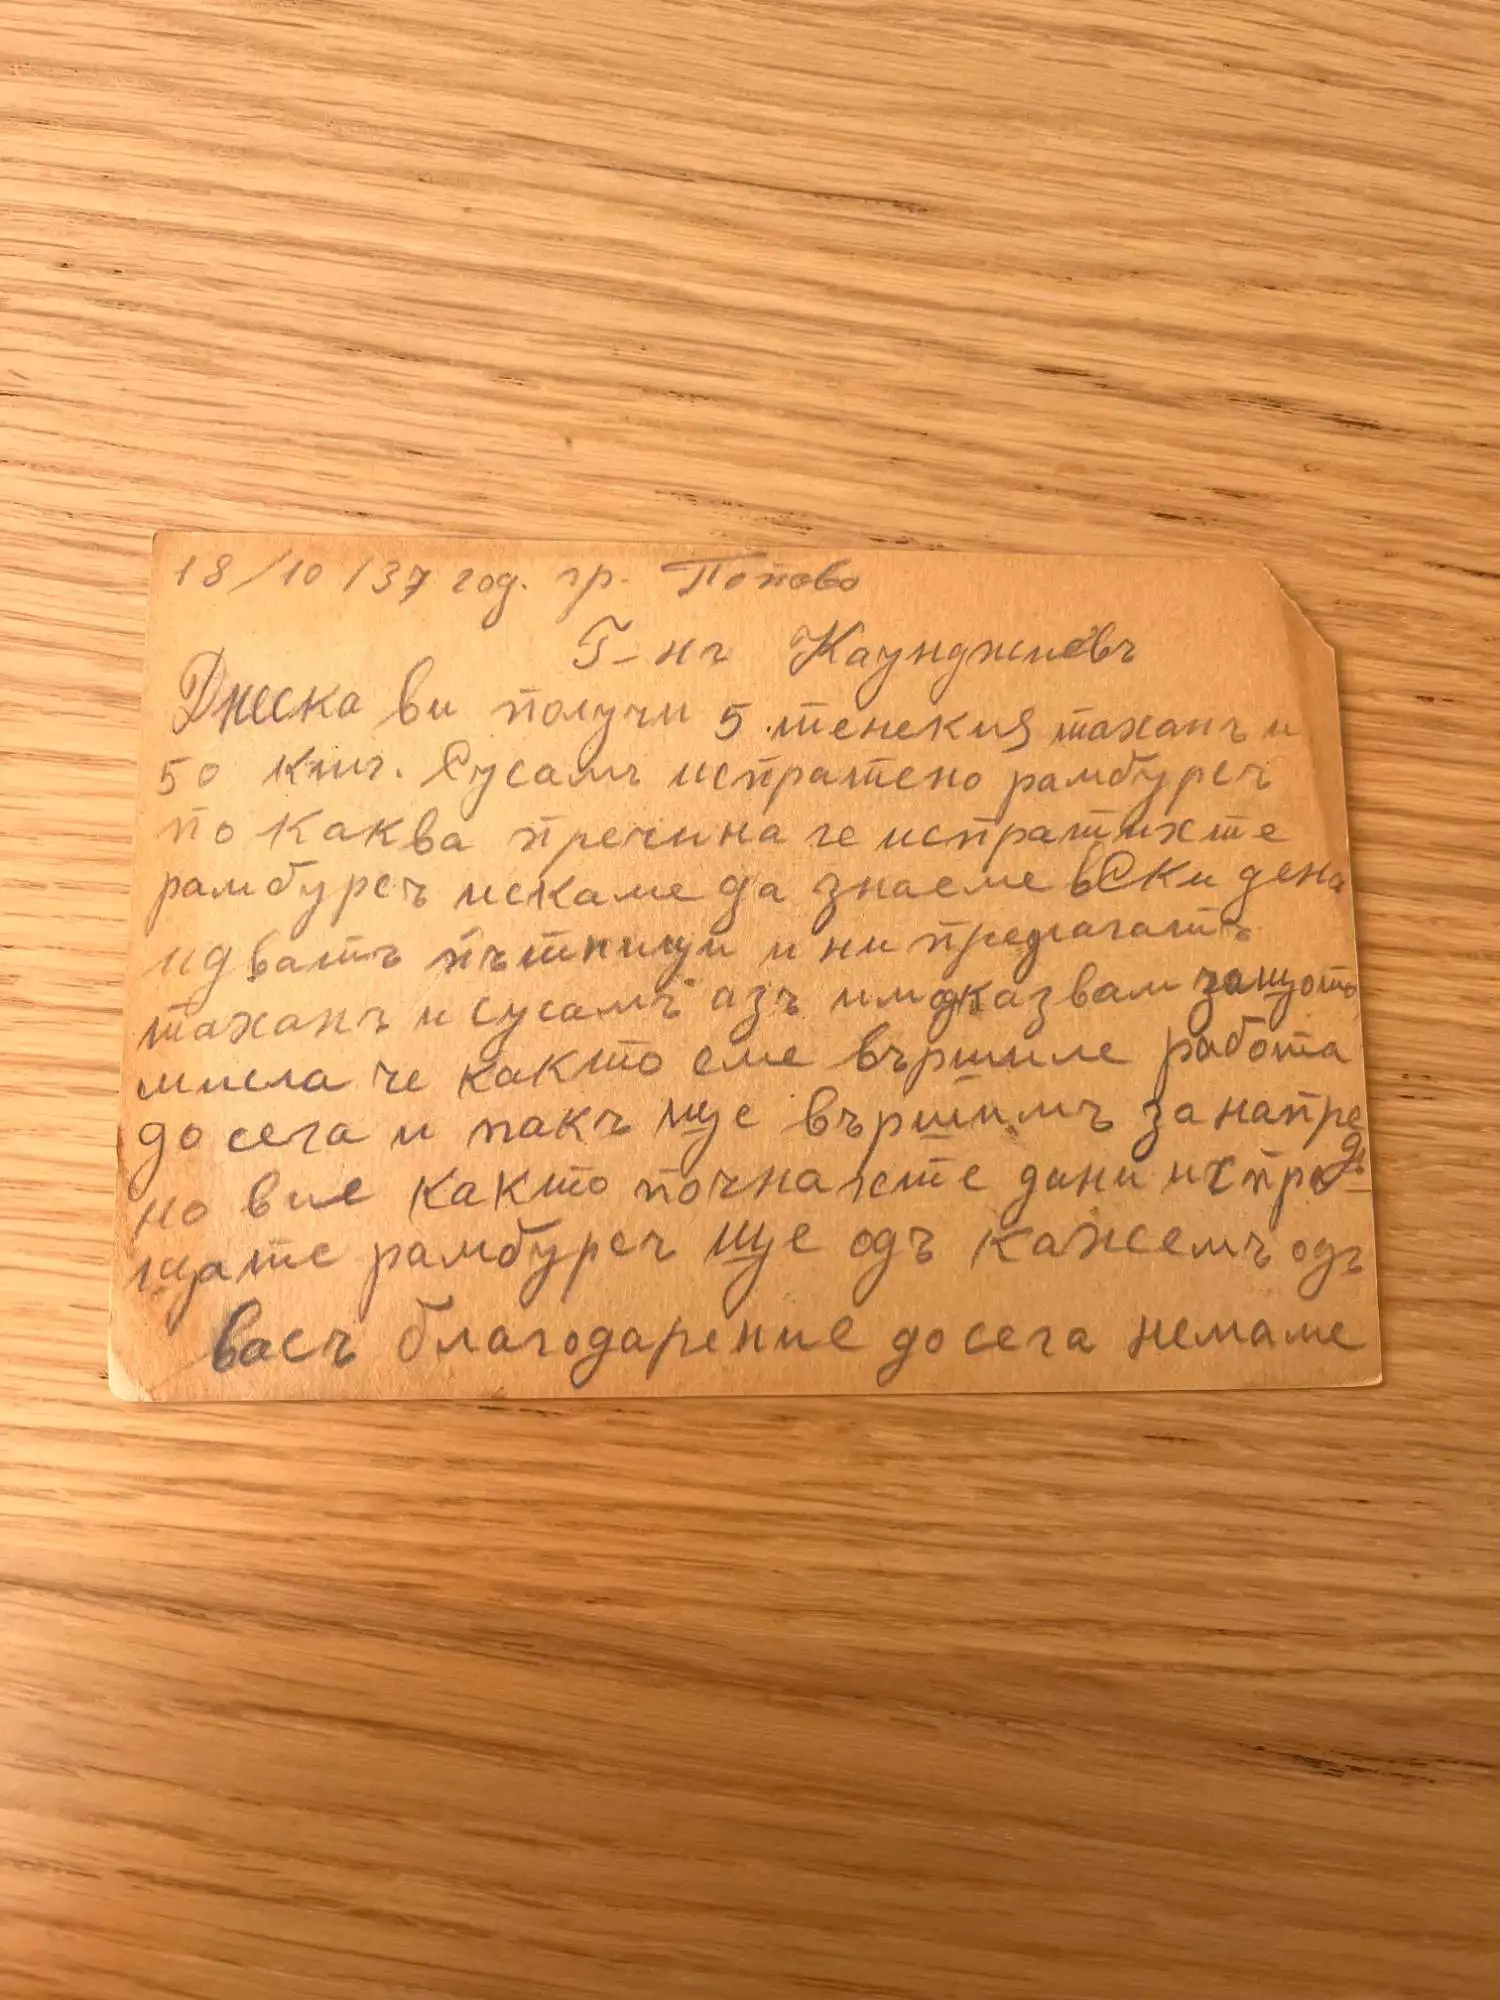 18/10/37 год. гр. Попово
Г-нъ Каунджиевъ
Днеска ви получи 5 тенекия таханъ и
50 киг. Сусамъ испратено рамбурсъ
по каква пречина ге испратихте
рамбурсъ искаме да знаеме вСки дена
идватъ пътници и ни предлагатъ
таханъ и сусамъ азъ имоказвам защото
мисла че както сме вършиле работа
до сега и пакъ ще вършимъ за напредъ
но вие както почнахте дани испра-
щате рамбурсъ ще одъ кажемъ одъ
васъ благодарение до сега немаме